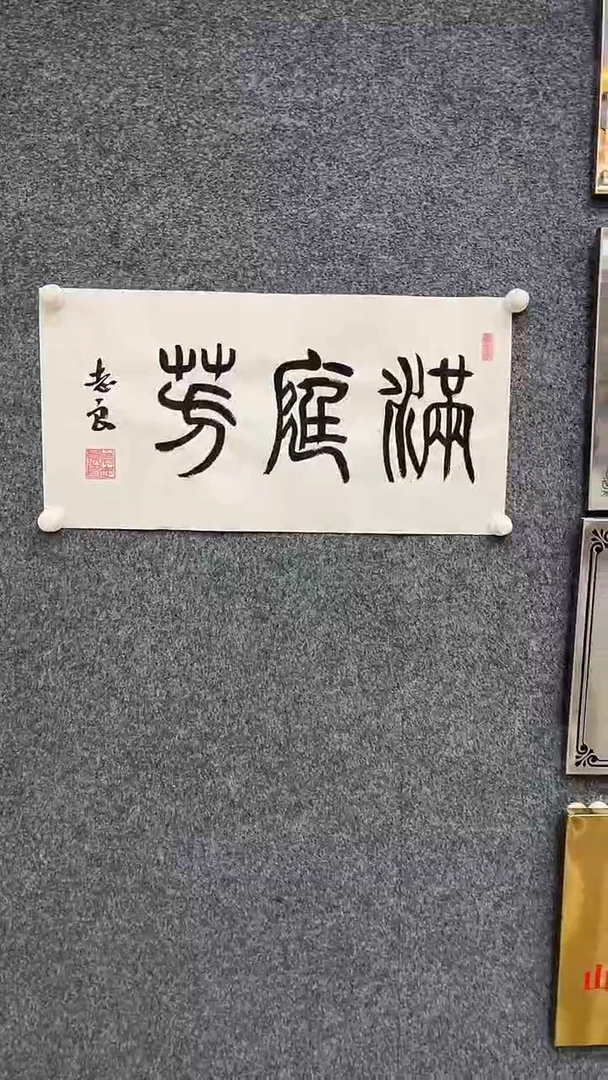 滿庭芳
志良
山